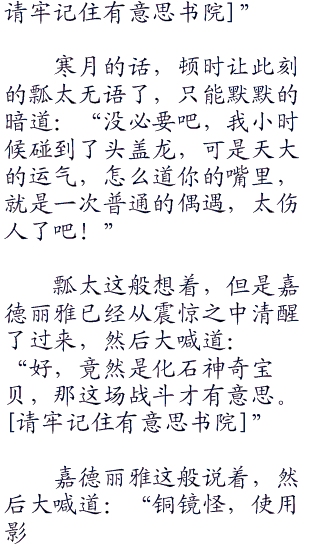 请牢记住有意思书院]”
寒月的话，顿时让此刻
的瓢太无语了，只能默默的
暗道：“没必要吧，我小时
候碰到了头盖龙，可是天大
的运气，怎么道你的嘴里，
就是一次普通的偶遇，太伤
人了吧！”
瓢太这般想着，但是嘉
德丽雅已经从震惊之中清醒
了过来，然后大喊道：
“好，竟然是化石神奇宝
贝，那这场战斗才有意思。
[请牢记住有意思书院]”
嘉德丽雅这般说着，然
后大喊道：“铜镜怪，使用
影